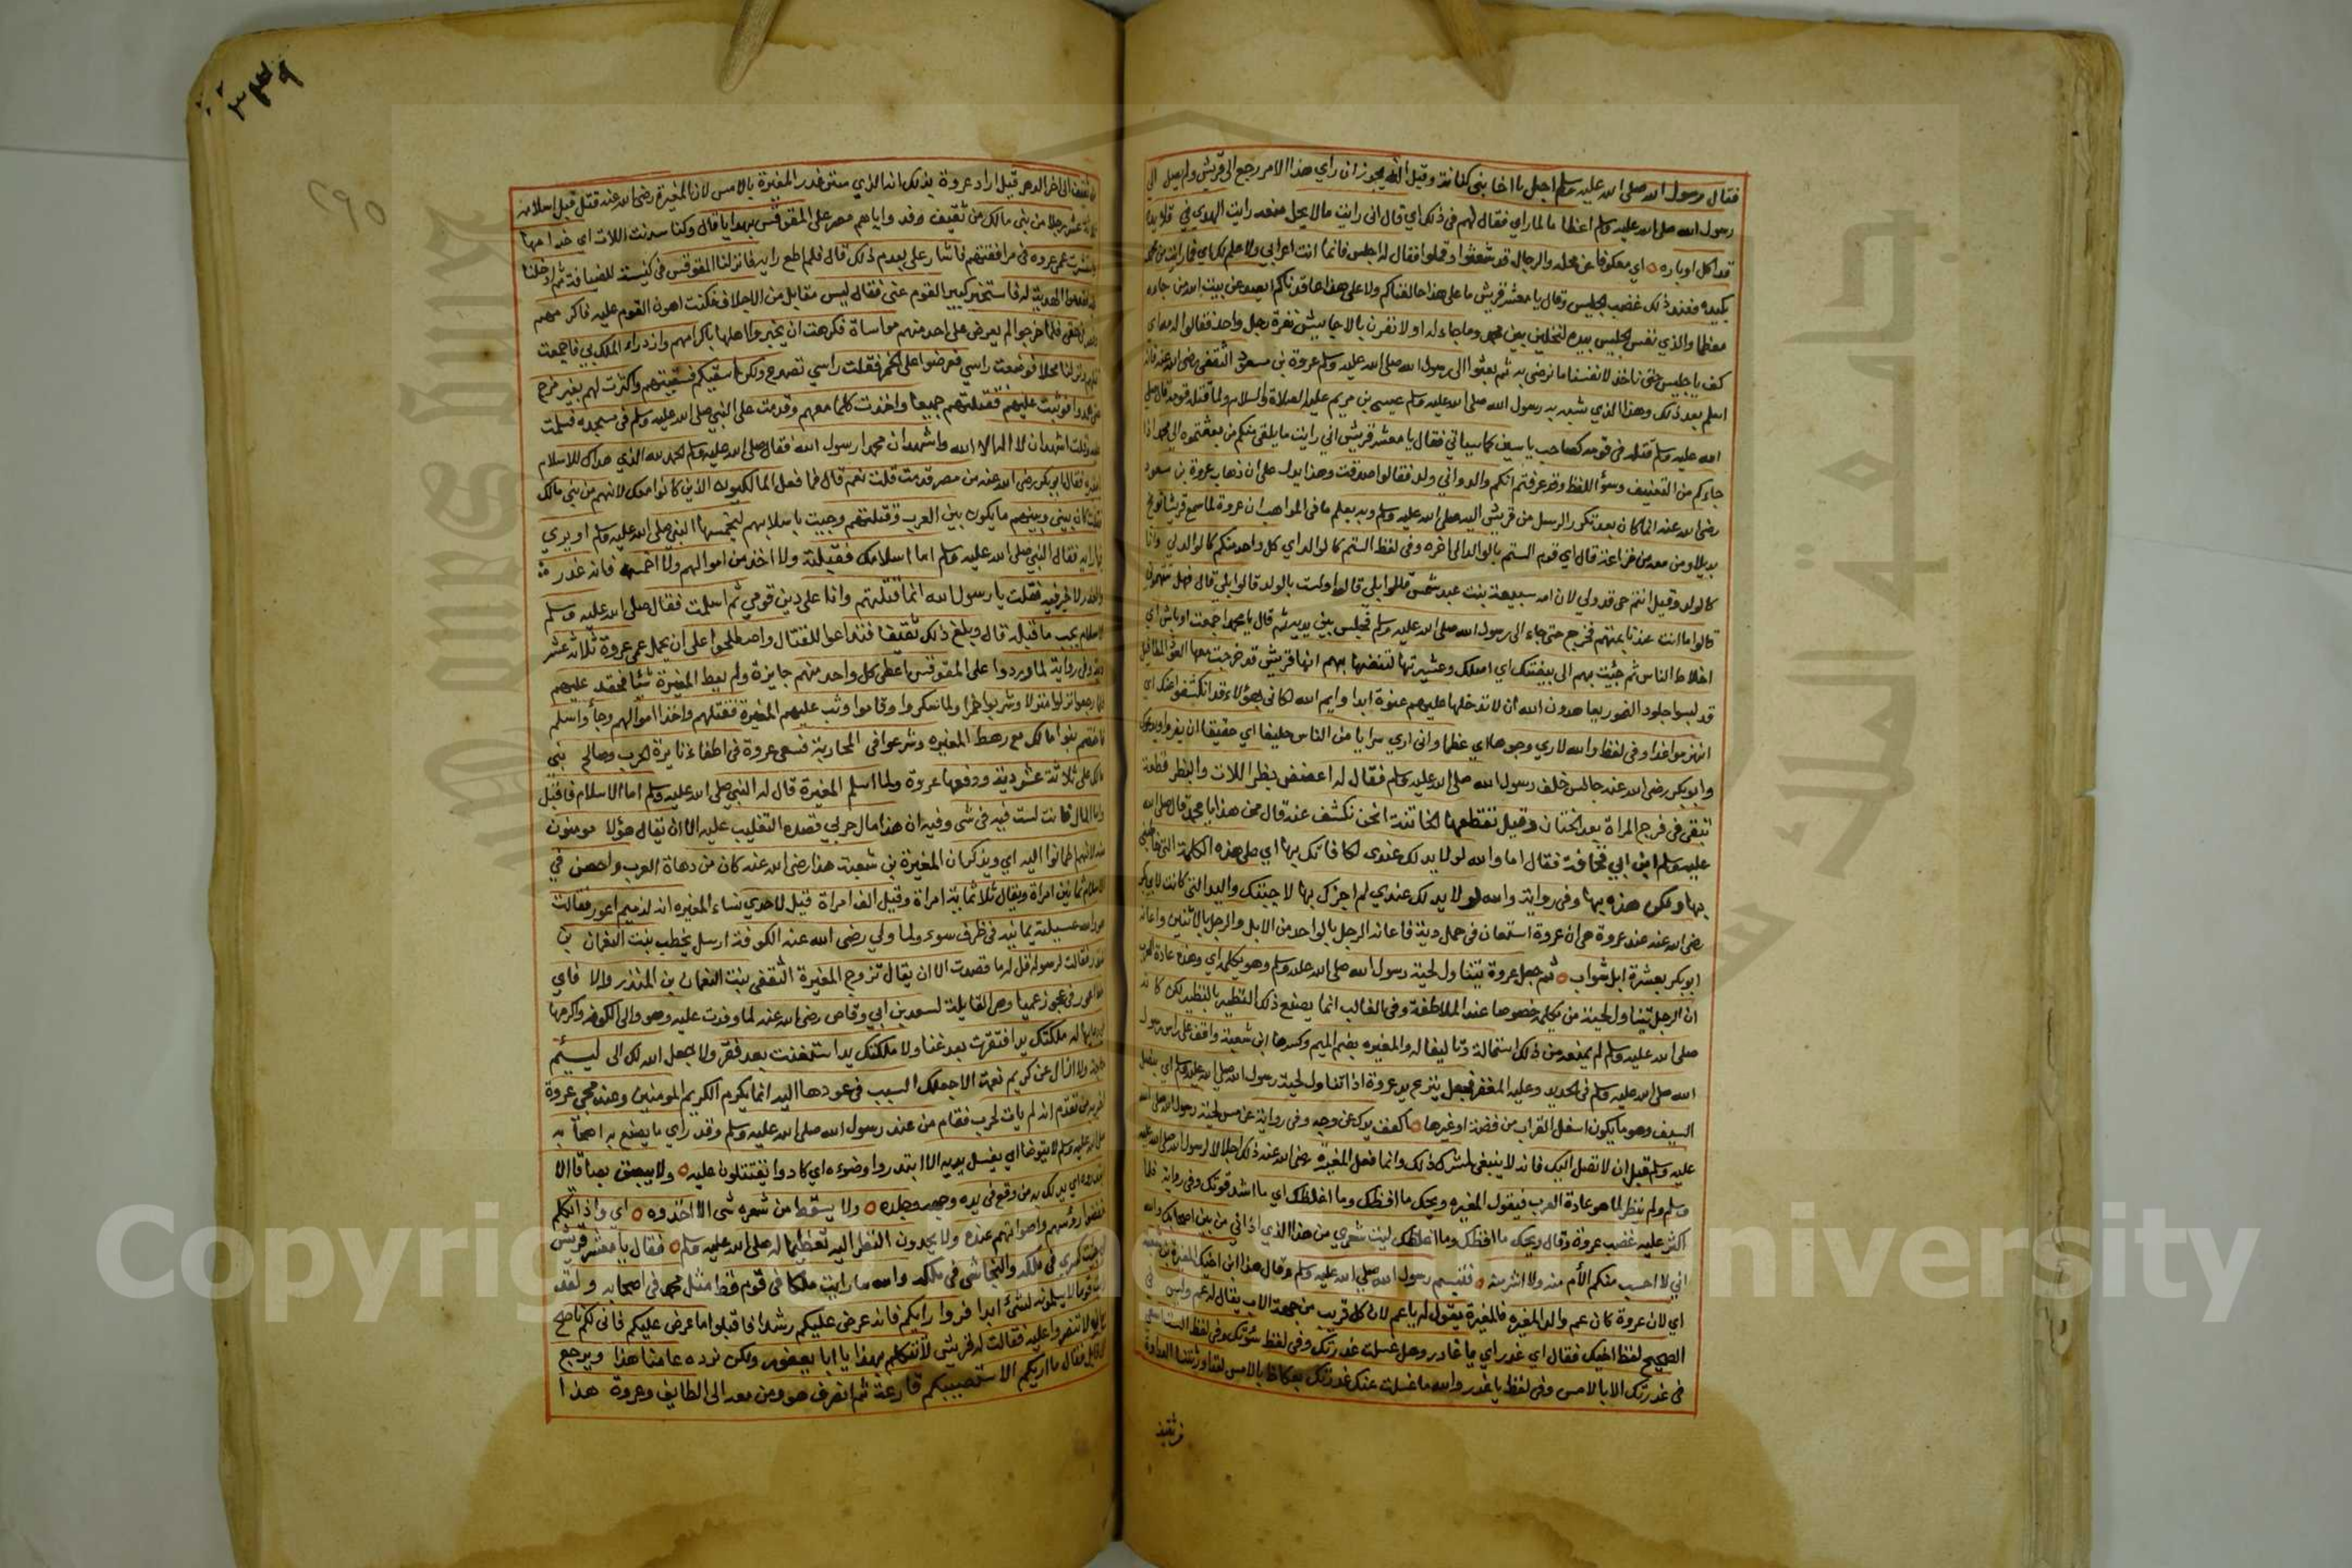 فقال رسول الله صلى الله عليه وسلم اجل يا اخا بني كنانة وقيل انه يجوز ان راي هذا الامر رجع الى قريش ولم يصل الى
رسول الله صلى الله عليه وسلم اعظاما لما راي فقال لهم في ذلك اي قال اني رايت مالا يحل منعه رايت الهدي في قلايده
قد اكل اوباره اي معكوفا عن محله والرجال قد شعثوا وقملوا فقال له اجلس فانما انت اعرابي ولا علم لك اي فما رايت من محمد
مكيدة فعند ذلك غضب الحليس وقال يا معشر قريش ما على هذا حالفناكم ولا على هذا عاقدناكم ايصد عن بيت الله من جاءه
معظما والذي نفس الحليس بيده لتخلين بين محمد وما جاء له او لا نفرن بالاحابيش نفرة رجل واحد فقالوا له مه اي
كف يا حليس حتى ناخذ لانفسنا ما نرضى به ثم بعثوا الى رسول الله صلى الله عليه وسلم عروة بن مسعود الثقفي رضي الله عنه فانه
اسلم بعد ذلك وهذا الذي شبه به رسول الله صلى الله عليه وسلم عيسى بن مريم عليه الصلاة والسلام ولما قتله قومه قال صلى
الله عليه وسلم مثله في قومه كصاحب ياسين كما سياتي فقال يا معشر قريش اني رايت ما يلقى منكم من بعثتموه الى محمد اذا
جاءكم من التعنيف وسؤ اللفظ وقد عرفتم انكم والد واني ولد فقالوا صدقت وهذا يدل على ان ذهاب عروة بن مسعود
رضي الله عنه انما كان بعد تكرر الرسل من قريش اليه صلى الله عليه وسلم وبه يعلم ما في المواهب ان عروة لما سمع قريشا توبخ
بديلا ومن معه من خزاعة قال اي قوم الستم بالوالد الى اخره وفي لفظ الستم كالوالد اي كل واحد منكم كالوالد لي وانا
كالولد وقيل انتم حي قد ولدني لان امه سبيعة بنت عبد شمس قالوا بلى قال اولست بالولد قالوا بلى قال فهل تتهموني
قالوا ما انت عندنا بمتهم فخرج حتى جاء الى رسول الله صلى الله عليه وسلم فجلس بين يديه ثم قال يا محمد اجمعت اوباش اي
اخلاط الناس ثم جئت بهم الى بيضتك اي اصلك وعشيرتك لتفضها بهم انها قريش قد خرجت معها العوذ المطافيل
قد لبسوا جلود النمور يعاهدون الله ان لا تدخلها عليهم عنوة ابدا وايم الله لكاني بهؤلاء قد انكشفوا عنك اي
انهزموا غدا وفي لفظ والله لاري وجوها اي عظما واني اري سرايا من الناس خليقا اي حقيقا ان يفروا ويدعوك
وابو بكر رضي الله عنه جالس خلف رسول الله صلى الله عليه وسلم فقال له اعضض بظر اللات والبظر قطعة
تبقى في فرج المراة بعد الختان وقيل تقطعها الخاتنة انحن نكشف عنه قال من هذا يا محمد قال صلى الله
عليه وسلم ابن ابي قحافة فقال اما والله لولا يد لك عندي لكافاتك بها اي على هذه الكلمة التي خاطبني
بها ولكن هذه بها وفي رواية والله لولا يد لك عندي لم اجزك بها لاجبتك واليد التي كانت لابي بكر
رضي الله عنه عند عروة هي ان عروة استعان في حمل دية فاعانه الرجل بالواحد من الابل والرجل بالاثنين واعانه
ابو بكر بعشرة ابل شواب ثم جعل عروة يتناول لحية رسول الله صلى الله عليه وسلم وهو يكلمه اي وهذه عادة العرب
ان الرجل يتناول لحية من يكلمه خصوصا عند الملاطفة وفي الغالب انما يصنع ذلك النظير بالنظير لكن كانه
صلى الله عليه وسلم لم يمنعه من ذلك استمالة وتاليفا له والمغيره بضم الميم وكسرها ابن شعبة واقف على راس رسول
الله صلى الله عليه وسلم في الحديد وعليه المغفر فجعل يقرع يد عروة اذا تناول لحية رسول الله صلى الله عليه وسلم اي بنصل
السيف وهو ما يكون اسفل القراب من فضة او غيرها اكفف يدك عن وجه وفي رواية عن مس لحية رسول الله صلى الله
عليه وسلم قبل ان لا تصل اليك فانه لا ينبغي لمشرك ذلك وانما فعل المغيرة رضي الله عنه ذلك اجلالا لرسول الله صلى الله عليه
وسلم ولم ينظر لما هو عادة العرب فيقول المغيره ويحك ما افظك وما اغلظك اي ما اشد قوتك وفي رواية فلما
اكثر عليه غضب عروة وقال ويحك ما افظك وما اغلظك ليت شعري من هذا الذي اذاني من بين اصحابك والله
اني لا احسب منكم الأم منه ولا اشر منه فتبسم رسول الله صلى الله عليه وسلم وقال هذا ابن اخيك المغيرة بن شعبه
اي لان عروة كان عم والد المغيره فالمغيرة يقول له يا عم لان كل قريب من جهة الاب يقال له عم وليس في
الصحيح لفظ اخيك فقال اي غدر اي يا غادر وهل غسلت غدرتك وفي لفظ سؤتك وفي لفظ الست اسعى
في غدرتك الا بالامس وفي لفظ يا غدر والله ما غسلت عنك غدرتك بعكاظ بالامس لقد اورثتنا العداوة
من ثقيف
٣٤٩
٢٩٥
من ثقيف الى اخر الدهر قيل اراد عروة بذلك انه الذي ستر غدر المغيرة بالامس لان المغيرة رضي الله عنه قتل قبل اسلامه
ثلاثة عشر رجلا من بني مالك من ثقيف وفد واياهم مصر على المقوقس بهدايا قال وكنا سدنت اللات اي خدامها
واستشرت عمي عروه في مرافقتهم فاشار علي بعدم ذلك قال فلم اطع رايه فانزلنا المقوقس في كنيسة للضيافة ثم ادخلنا
عليه فقدموا الهدية له فاستخبر كبير القوم عني فقال ليس منا بل من الاحلاف فكنت اهون القوم عليه فاكرمهم
وقصر في حقي فلما خرجوا لم يعرض علي احد منهم مواساة فكرهت ان يخبروا اهلنا باكرامهم وازدراء الملك بي فاجمعت
قتلهم ونزلنا محلا فوضعت راسي فعرضوا علي الخمر فقلت راسي تصدع ولكن اسقيكم فسقيتهم واكثرت لهم بغير مزج
حتى همدوا فوثبت عليهم فقتلتهم جميعا واخذت كلما معهم وقدمت على النبي صلى الله عليه وسلم في مسجده فسلمت
عليه وقلت اشهد ان لا اله الا الله واشهد ان محمدا رسول الله فقال صلى الله عليه وسلم الحمد لله الذي هداك للاسلام
فقال ابو بكر رضي الله عنه من مصر قدمت قلت نعم قال فما فعل المالكيون الذين كانوا معك لانهم من بني مالك
قلت كان بيني وبينهم ما يكون بين العرب وقتلتهم وجيت باسلابهم ليخمسها النبي صلى الله عليه وسلم او يري
فيها رايه فقال النبي صلى الله عليه وسلم اما اسلامك فقبلته ولا اخذ من اموالهم ولا اخمسه فانه غدر
والغدر لا خير فيه فقلت يا رسول الله انما قتلتهم وانا على دين قومي ثم اسلمت فقال صلى الله عليه وسلم
الاسلام يجب ما قبله قال وبلغ ذلك ثقيفا فتداعوا للقتال واصطلحوا على ان يحمل عمي عروة ثلاثة عشر
دية وفي رواية لما وردوا على المقوقس اعطى كل واحد منهم جايزة ولم يعط المغيرة شئا فحقد عليهم
فلما رجعوا نزلوا منزلا وشربوا خمرا ولما سكروا وناموا وثب عليهم المغيرة فقتلهم واخذ اموالهم وجاء واسلم
فاختصم بنوا مالك مع رهط المغيره وشرعوا في المحاربة فسعى عروة في اطفاء نايرة الحرب وصالح بني
مالك على ثلاثة عشر دية ودفعها عروة ولما اسلم المغيرة قال له النبي صلى الله عليه وسلم اما الاسلام فاقبل
واما المال فانت لست فيه في شي وفيه ان هذا مال حربي قصده التغليب عليه الا ان يقال هؤلا مومنون
منه لانهم اطمانوا اليه اي ويذكر ان المغيرة بن شعبة هذا رضي الله عنه كان من دهاة العرب واحصن في
الاسلام ثمانين امراة ويقال ثلاثماية امراة وقيل الف امراة قيل لاحدي نساء المغيره انه لذميم اعور فقالت
هو والله عسيلة يمانية في ظرف سوء ولما ولي رضي الله عنه الكوفة ارسل يخطب بنت النعمان بن
المنذر فقالت لرسوله قل له ما قصدت الا ان يقال تزوج المغيرة الثقفي بنت النعمان بن المنذر والا فاي
حظ لاعور في عجوز عميا وهي القايلة لسعد بن ابي وقاص رضي الله عنه لما وفدت عليه وهو والي الكوفه واكرمها
ملكتك يد افتقرت بعد غنا ولا ملكتك يد استغنت بعد فقر ولا جعل الله لك الى لييم
حاجة ولا ازال عن كريم نعمة الا جعلك السبب في عودها اليه انما يكرم الكريم المومنين وعند مجي عروة
اخبره بما تقدم انه لم يات لحرب فقام من عند رسول الله صلى الله عليه وسلم وقد راي ما يصنع به اصحابه
صلى الله عليه وسلم لا يتوضا اي يغسل يديه الا ابتدروا وضوءه اي كادوا يقتتلون عليه ولا يبصق بصاقا الا
ابتدروه اي يدلك به من وقع في يده وجهه وجلده ولا يسقط من شعره شي الا اخذوه اي واذا تكلم
خفضوا رؤسهم واصواتهم عنده ولا يحدون النظر اليه تعظيما له صلى الله عليه وسلم فقال يا معشر قريش
اني جئت كسري في ملكه والنجاشي في ملكه والله ما رايت ملكا في قوم قط مثل محمد في اصحابه ولقد
رايت قوما لا يسلمونه لشئ ابدا فروا رايكم فانه عرض عليكم رشدا فاقبلوا ما عرض عليكم فاني لكم ناصح
لا تنصروا عليه فقالت له قريش لا تتكلم بهذا يا ابا يعفور ولكن نرده عامنا هذا ويرجع
الى قابل فقال ما اريكم الا ستصيبكم قارعة ثم انصرف هو ومن معه الى الطايف وعروة هذا
Copyright © King Saud University
جامعة الملك سعود